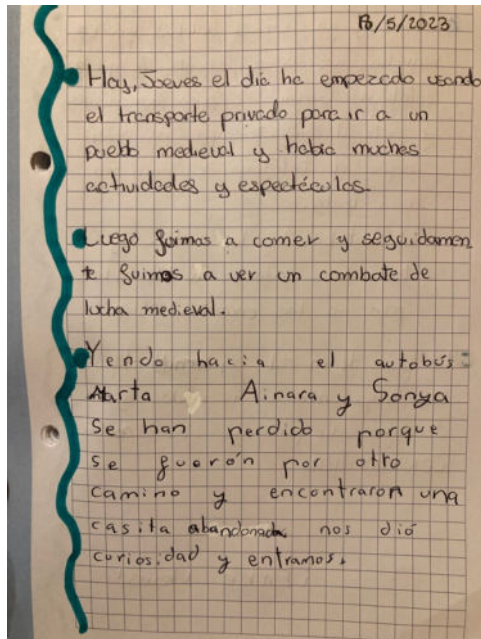 18/5/2023
Hoy, Jueves el día ha empezado usando
el transporte privado para ir a un
pueblo medieval y había muchas
actividades y espectáculos.
Luego fuimos a comer y seguidamen
te fuimos a ver un combate de
lucha medieval.
Yendo hacia el autobús
Marta Ainara y Sonya
se han perdido porque
se fuerón por otro
camino y encontraron una
casita abandonada nos dió
curiosidad y entramos.